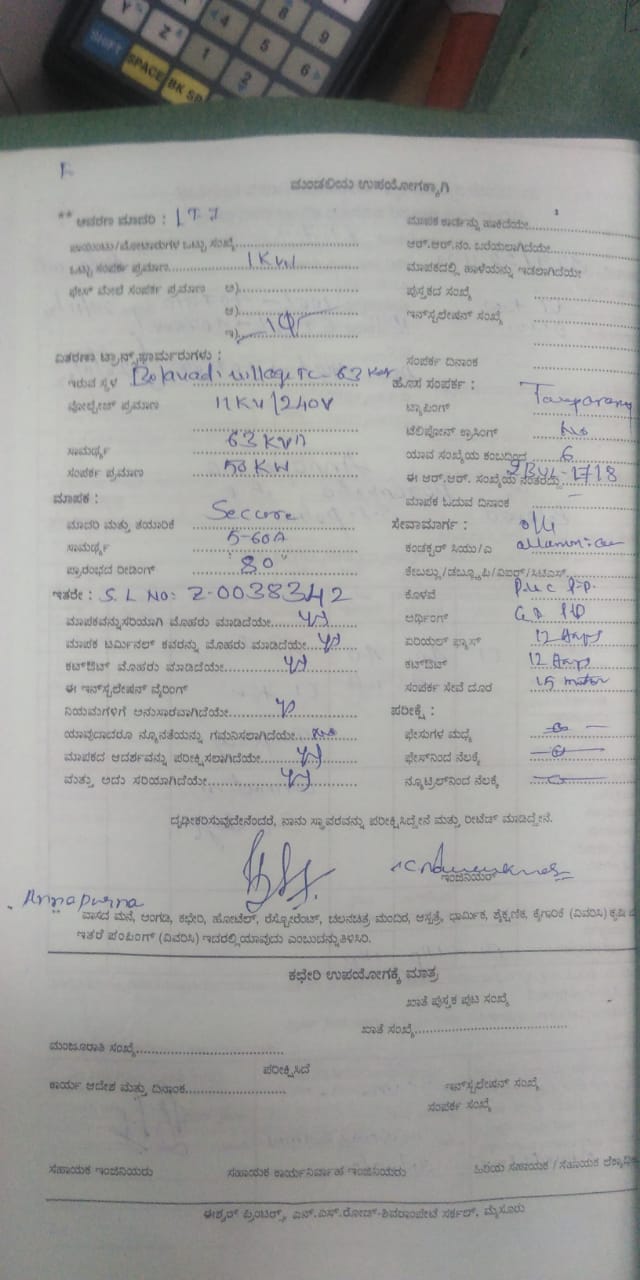 Y
Z
4
8
9
SHIFT
SPACE
BK SP
1
5
2
6
ಮಂಡಲಿಯ ಉಪಯೋಗಕ್ಕಾಗಿ
** ಆವರಣ ಮಾದರಿ : LT 7
ಒಟ್ಟು ಸಂಖ್ಯೆ
ಒಟ್ಟು ಸಂಪರ್ಕ ಪ್ರಮಾಣ 1 KW
ಫೇಸ್ ಮೇಲೆ ಸಂಪರ್ಕ ಪ್ರಮಾಣ ಅ)
ಆ)
ಇ) 1φ
ವಿತರಣಾ ಟ್ರಾನ್ಸ್‌ಫಾರ್ಮರುಗಳು :
ಇರುವ ಸ್ಥಳ Belavadi village TC 63 KVA
ವೋಲ್ಟೇಜ್ ಪ್ರಮಾಣ 11 KV / 240V
ಸಾಮರ್ಥ್ಯ 63 KVA
ಸಂಪರ್ಕ ಪ್ರಮಾಣ 50 KW
ಮಾಪಕ :
ಮಾದರಿ ಮತ್ತು ತಯಾರಿಕೆ Secure
ಸಾಮರ್ಥ್ಯ 5-60A
ಪ್ರಾರಂಭದ ರೀಡಿಂಗ್ "80"
ಇತರೇ : S.L NO: Z-0038342
ಮಾಪಕವನ್ನು ಸರಿಯಾಗಿ ಮೊಹರು ಮಾಡಿದೆಯೇ
ಮಾಪಕ ಟರ್ಮಿನಲ್ ಕವರನ್ನು ಮೊಹರು ಮಾಡಿದೆಯೇ
ಕಟ್‌ಔಟ್ ಮೊಹರು ಮಾಡಿದೆಯೇ
ಈ ಇನ್‌ಸ್ಟಲೇಷನ್ ವೈರಿಂಗ್
ನಿಯಮಗಳಿಗೆ ಅನುಸಾರವಾಗಿದೆಯೇ
ಯಾವುದಾದರೂ ನ್ಯೂನತೆಯನ್ನು ಗಮನಿಸಲಾಗಿದೆಯೇ
ಮಾಪಕದ ಆದರ್ಶವನ್ನು ಪರೀಕ್ಷಿಸಲಾಗಿದೆಯೇ
ಮತ್ತು ಅದು ಸರಿಯಾಗಿದೆಯೇ
ಮಾಪಕ ಕಾರ್ಡನ್ನು ಹಾಕಿದೆಯೇ
ಆರ್.ಆರ್.ನಂ. ಬರೆಯಲಾಗಿದೆಯೇ
ಮಾಪಕದಲ್ಲಿ ಹಾಳೆಯನ್ನು ಇಡಲಾಗಿದೆಯೇ
ಪುಸ್ತಕದ ಸಂಖ್ಯೆ
ಇನ್‌ಸ್ಟಲೇಷನ್ ಸಂಖ್ಯೆ
ಸಂಪರ್ಕ ದಿನಾಂಕ
ಹೊಸ ಸಂಪರ್ಕ :
ಟ್ಯಾಪಿಂಗ್
ಟೆಲಿಫೋನ್ ಕ್ರಾಸಿಂಗ್ No
ಯಾವ ಸಂಖ್ಯೆಯ ಕಂಬದಿಂದ 6
ಈ ಆರ್.ಆರ್. ಸಂಖ್ಯೆಯ ನಂತರದ್ದು 2BVL-1718
ಮಾಪಕ ಓದುವ ದಿನಾಂಕ -
ಸೇವಾಮಾರ್ಗ : o/h
ಕಂಡಕ್ಟರ್ ಸಿಯು/ಎ
ಕೇಬಲ್ಲು/ಡಬ್ಲ್ಯೂಪಿ/ವಿಐಆರ್/ಸಿಟಿಎಸ್
ಕೊಳವೆ
ಅರ್ಥಿಂಗ್
ಏರಿಯಲ್ ಫ್ಯೂಸ್ 12 Amps
ಕಟ್‌ಔಟ್ 12 Amps
ಸಂಪರ್ಕ ಸೇವೆ ದೂರ 15 meter
ಪರೀಕ್ಷೆ :
ಫೇಸುಗಳ ಮಧ್ಯೆ
ಫೇಸ್‌ನಿಂದ ನೆಲಕ್ಕೆ
ನ್ಯೂಟ್ರಿಲ್‌ನಿಂದ ನೆಲಕ್ಕೆ
ದೃಢೀಕರಿಸುವುದೇನೆಂದರೆ, ನಾನು ಸ್ಥಾವರವನ್ನು ಪರೀಕ್ಷಿಸಿದ್ದೇನೆ ಮತ್ತು ರೀಟೆಡ್ ಮಾಡಿದ್ದೇನೆ.
ಇಂಜಿನಿಯರ್
Annapurna
ವಾಸದ ಮನೆ, ಅಂಗಡಿ, ಕಛೇರಿ, ಹೋಟೆಲ್, ರೆಸ್ಟೋರೆಂಟ್, ಚಲನಚಿತ್ರ ಮಂದಿರ, ಆಸ್ಪತ್ರೆ, ಧಾರ್ಮಿಕ, ಶೈಕ್ಷಣಿಕ, ಕೈಗಾರಿಕೆ (ವಿವರಿಸಿ) ಕೃಷಿ
ಇತರೆ ಪಂಪಿಂಗ್ (ವಿವರಿಸಿ) ಇದರಲ್ಲಿ ಯಾವುದು ಎಂಬುದನ್ನು ತಿಳಿಸಿರಿ.
ಕಛೇರಿ ಉಪಯೋಗಕ್ಕೆ ಮಾತ್ರ
ಖಾತೆ ಪುಸ್ತಕ ಪುಟ ಸಂಖ್ಯೆ
ಖಾತೆ ಸಂಖ್ಯೆ
ಮಂಜೂರಾತಿ ಸಂಖ್ಯೆ
ಪರೀಕ್ಷಿಸಿದೆ
ಕಾರ್ಯ ಆದೇಶ ಮತ್ತು ದಿನಾಂಕ
ಇನ್‌ಸ್ಟಲೇಷನ್ ಸಂಖ್ಯೆ
ಸಂಪರ್ಕ ಸಂಖ್ಯೆ
ಸಹಾಯಕ ಇಂಜಿನಿಯರು
ಸಹಾಯಕ ಕಾರ್ಯನಿರ್ವಾಹಕ ಇಂಜಿನಿಯರು
ಹಿರಿಯ ಸಹಾಯಕ / ಸಹಾಯಕ
ಈಶ್ವರ್ ಪ್ರಿಂಟರ್ಸ್, ಎನ್.ಎಸ್.ರೋಡ್-ಶಿವರಾಂಪೇಟೆ ಸರ್ಕಲ್, ಮೈಸೂರು